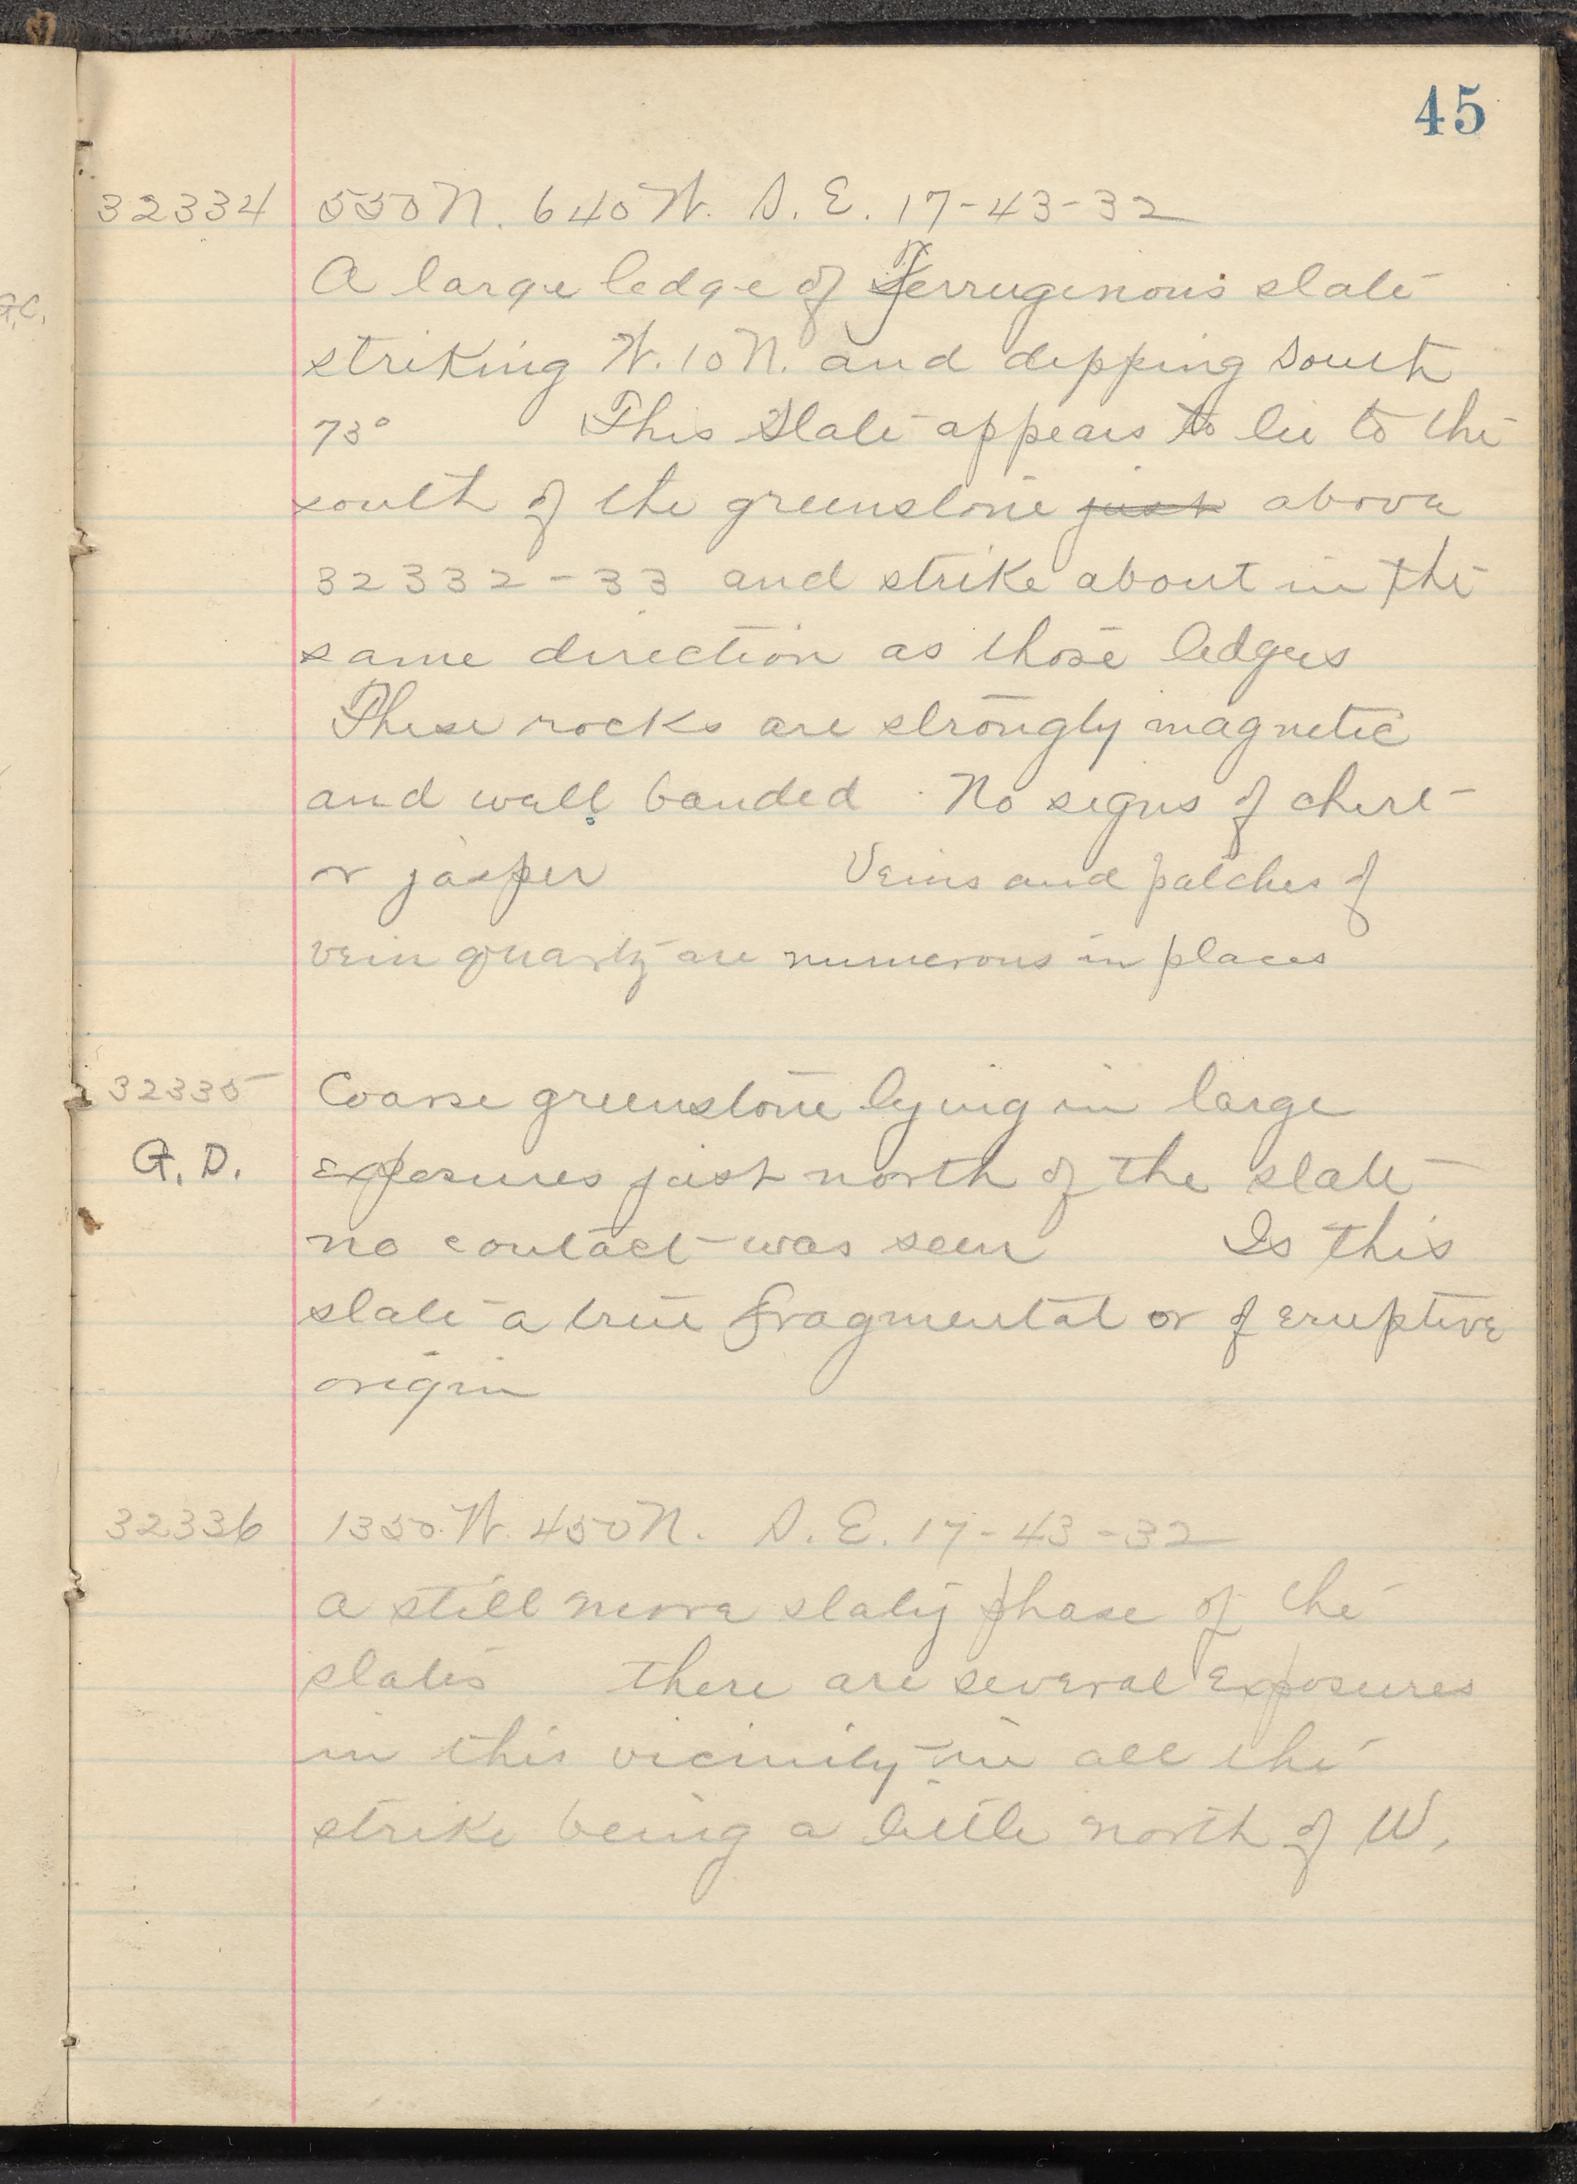 45
32334 550 N. 640 W. S. E. 17-43-32
A large ledge of ferrugenous slate
striking W. 10 N. and dipping south
73° This slate appears to lie to the
south of the greenstone just above
32332-33 and strike about in the
same direction as those ledges
These rocks are strongly magnetic
and well banded No signs of chert
or jasper Veins and patches of
vein quartz are numerous in places
32335 Coarse greenstone lying in large
G. D. exposures just north of the slate
no contact was seen Is this
slate a true fragmental or of eruptive
origin
32336 1350 W. 450 N. S. E. 17-43-32
a still more slaty phase of the
slates there are several exposures
in this vicinity in all the
strike being a little north of W.